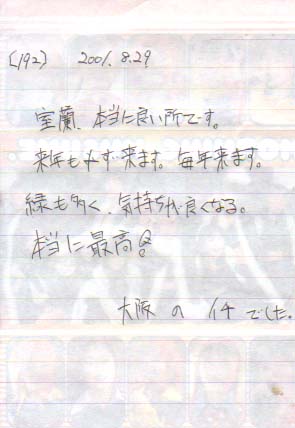 [192] 2001.8.29
室蘭、本当に良い所です。
来年も必ず来ます。毎年来ます。
緑も多く、気持ちが良くなる。
本当に最高
大阪の イチ でした。